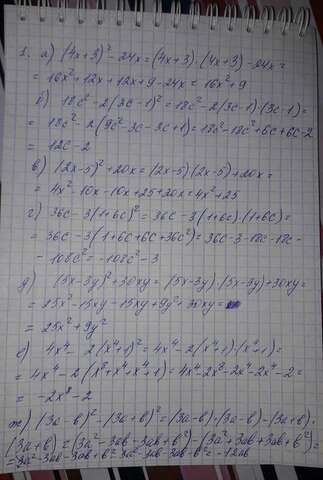 1. а) (4x+3)² - 24x = (4x+3)·(4x+3) - 24x =
= 16x² + 12x + 12x + 9 - 24x = 16x² + 9
б) 18c² - 2(3c-1)² = 18c² - 2(3c-1)·(3c-1) =
= 18c² - 2(9c² - 3c - 3c + 1) = 18c² - 18c² + 6c + 6c - 2
= 12c - 2
в) (2x-5)² + 20x = (2x-5)(2x-5) + 20x =
= 4x² - 10x - 10x + 25 + 20x = 4x² + 25
г) 36c - 3(1+6c)² = 36c - 3(1+6c)·(1+6c) =
= 36c - 3(1+6c+6c+36c²) = 36c - 3 - 18c - 18c -
- 108c² = -108c² - 3
д) (5x-3y)² + 30xy = (5x-3y)·(5x-3y) + 30xy =
= 25x² - 15xy - 15xy + 9y² + 30xy =
= 25x² + 9y²
е) 4x⁴ - 2(x⁴+1)² = 4x⁴ - 2(x⁴+1)·(x⁴+1) =
= 4x⁴ - 2(x⁸+x⁴+x⁴+1) = 4x⁴ - 2x⁸ - 2x⁴ - 2x⁴ - 2 =
= -2x⁸ - 2
ж) (3a-b)² - (3a+b)² = (3a-b)·(3a-b) - (3a+b)·
(3a+b) = (3a² - 3ab - 3ab + b²) - (3a² + 3ab + 3ab + b²) =
= 3a² - 3ab - 3ab + b² - 3a² - 3ab - 3ab - b² = -12ab